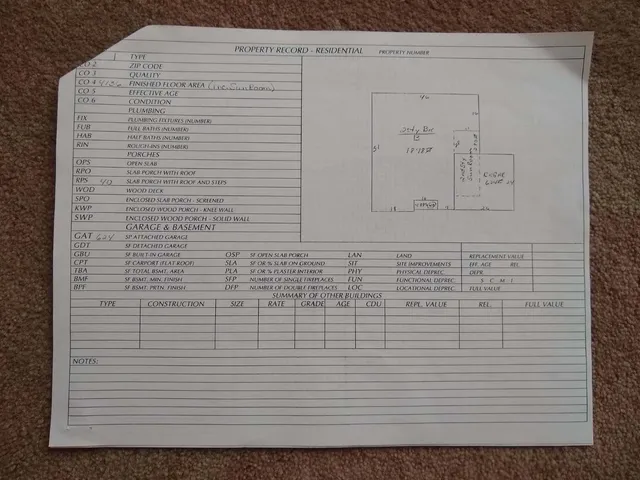 PROPERTY RECORD - RESIDENTIAL PROPERTY NUMBER
1 TYPE
CO 2 ZIP CODE
CO 3 QUALITY
CO 4 FINISHED FLOOR AREA (Inc. Sun Room)
CO 5 EFFECTIVE AGE
CO 6 CONDITION
PLUMBING
FIX PLUMBING FIXTURES (NUMBER)
FUB FULL BATHS (NUMBER)
HAB HALF BATHS (NUMBER)
RIN ROUGH-INS (NUMBER)
PORCHES
OPS OPEN SLAB
RPO SLAB PORCH WITH ROOF
RPS 40 SLAB PORCH WITH ROOF AND STEPS
WOD WOOD DECK
SPO ENCLOSED SLAB PORCH - SCREENED
KWP ENCLOSED WOOD PORCH - KNEE WALL
SWP ENCLOSED WOOD PORCH - SOLID WALL
GARAGE & BASEMENT
GAT 624 SF ATTACHED GARAGE
GDT SF DETACHED GARAGE
GBU SF BUILT-IN GARAGE OSP SF OPEN SLAB PORCH LAN LAND REPLACEMENT VALUE
CPT SF CARPORT (FLAT ROOF) SLA SF OR % SLAB ON GROUND SIT SITE IMPROVEMENTS EFF. AGE REL.
TBA SF TOTAL BSMT. AREA PLA SF OR % PLASTER INTERIOR PHY PHYSICAL DEPREC. DEPR.
BMF SF BSMT. MIN. FINISH SFP NUMBER OF SINGLE FIREPLACES FUN FUNCTIONAL DEPREC. S C M I
BPF SF BSMT. PRTN. FINISH DFP NUMBER OF DOUBLE FIREPLACES LOC LOCATIONAL DEPREC. FULL VALUE
SUMMARY OF OTHER BUILDINGS
TYPE CONSTRUCTION SIZE RATE GRADE AGE CDU REPL. VALUE REL. FULL VALUE
NOTES:
2 sty Br
51
Sun Room